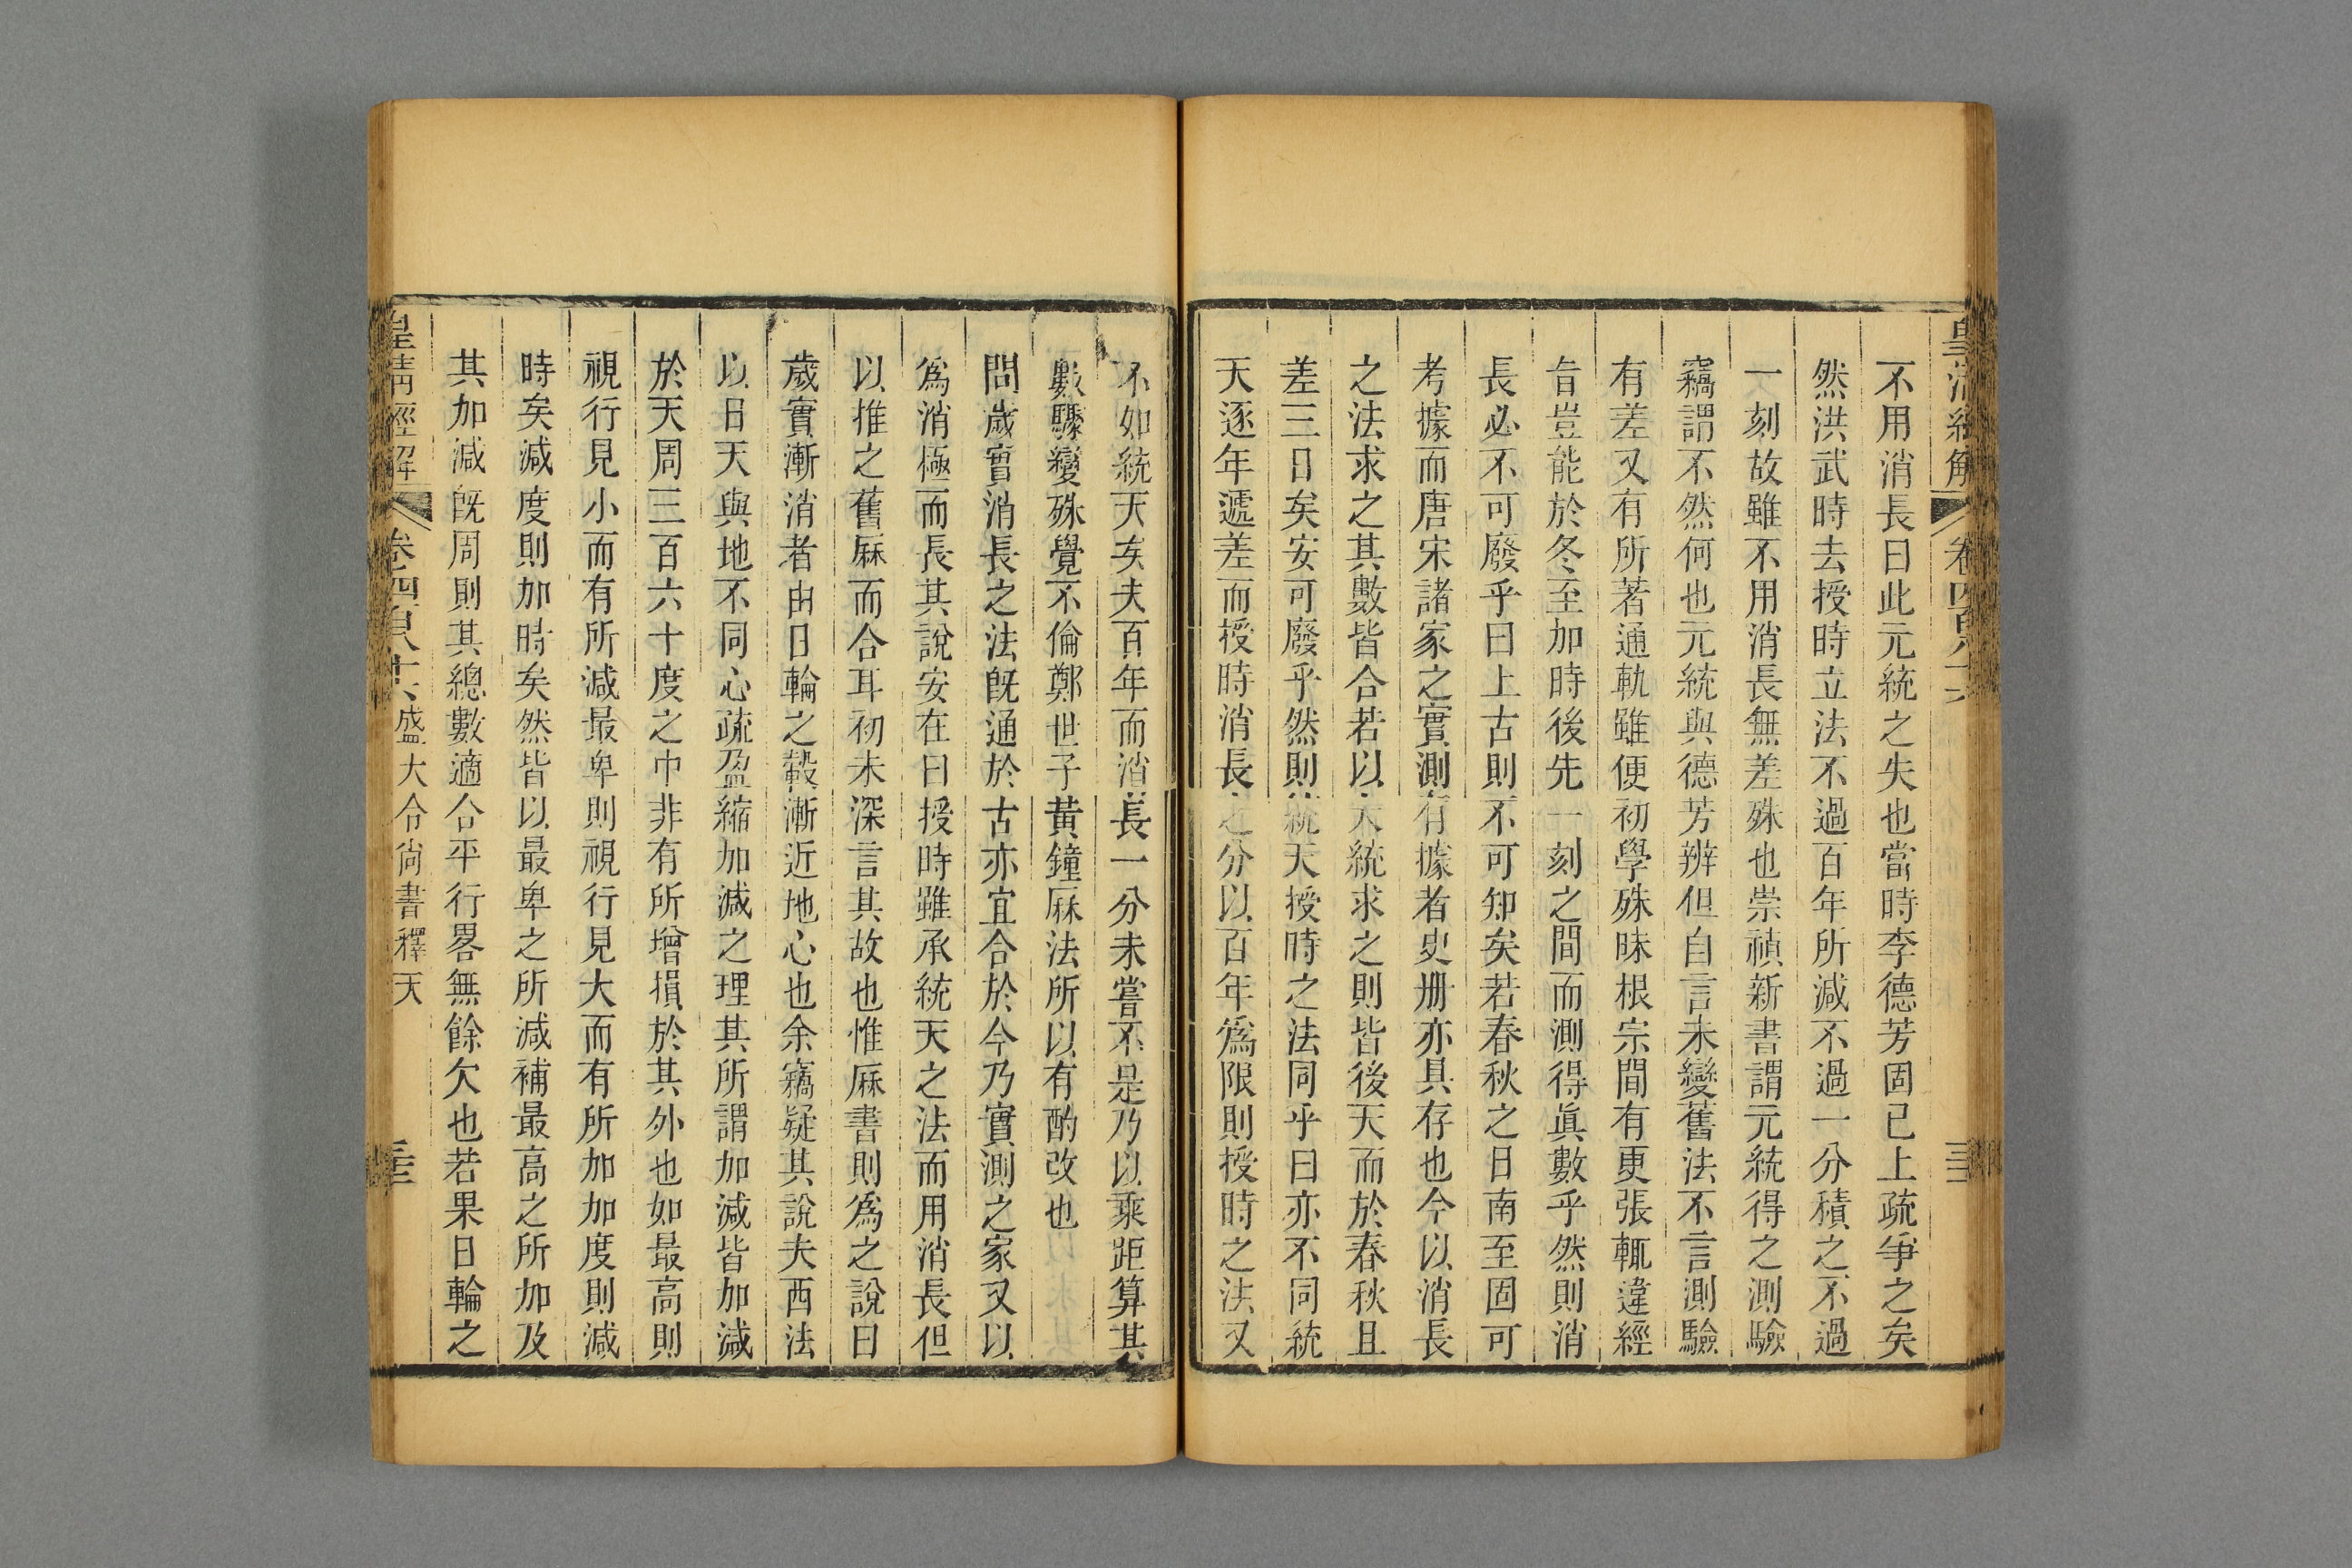 不用消長曰此元統之失也當時李德芳固已上疏爭之矣
然洪武時去授時立法不過百年所減不過一分積之不過
一刻故雖不用消長無差殊也崇禎新書謂元統得之測驗
竊謂不然何也元統與德芳辨但自言未變舊法不言測驗
有差又有所著通軌雖便初學殊昧根宗間有更張輒違經
旨豈能於冬至加時後先一刻之間而測得眞數乎然則消
長必不可廢乎曰上古則不可知矣若春秋之日南至固可
考據而唐宋諸家之實測有據者史册亦具存也今以消長
之法求之其數皆合若以大統求之則皆後天而於春秋且
差三日矣安可廢乎然則統天授時之法同乎曰亦不同統
天逐年遞差而授時消長之分以百年爲限則授時之法又
不如統天矣夫百年而消長一分未嘗不是乃以乘距算其
數驟變殊覺不倫鄭世子黃鐘厤法所以有酌改也
問歲實消長之法旣通於古亦宜合於今乃實測之家又以
爲消極而長其說安在曰授時雖承統天之法而用消長但
以推之舊厤而合耳初未深言其故也惟厤書則爲之說曰
歲實漸消者由日輪之轂漸近地心也余竊疑其說夫西法
以日天與地不同心疏盈縮加減之理其所謂加減皆加減
於天周三百六十度之中非有所增損於其外也如最高則
視行見小而有所減最卑則視行見大而有所加加度則減
時矣減度則加時矣然皆以最卑之所減補最高之所加及
其加減旣周則其總數適合平行畧無餘欠也若果日輪之
皇清經解
卷四百八十六 盛大令尚書釋天